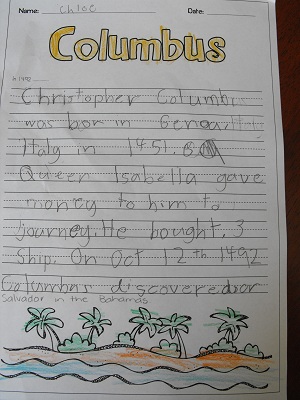 Name: Chloe Date:
Columbus
in 1492
Christopher Columbu
was bor in Genoa,
Italy in 1451.
Queen Isabella gave
money to him to
journey. He bought, 3
Ship. On Oct 12th 1492
Columbus discovered or
Salvador in the Bahamas